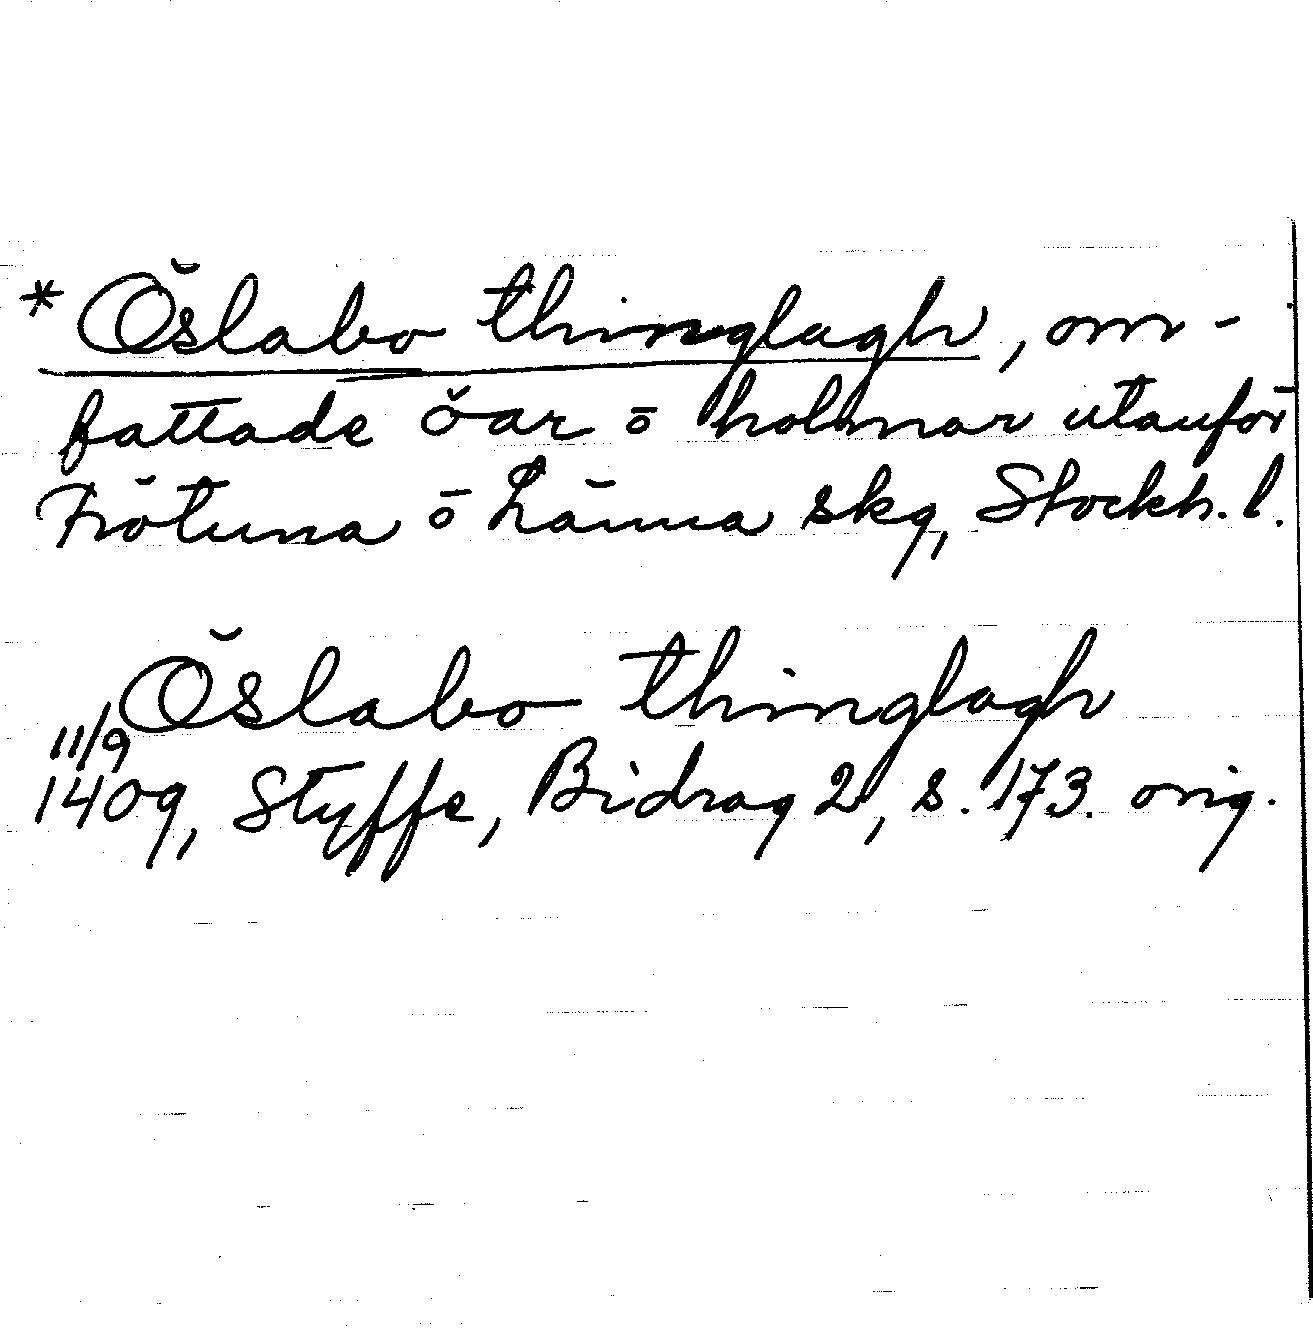 * Öslabo thinglagh, om-
fattade öar ō holmar utanför
Frötuna ō Länna skg, Stockh. l.
Öslabo thinglagh
11/9
1409, Styffe, Bidrag 2, s. 173. orig.